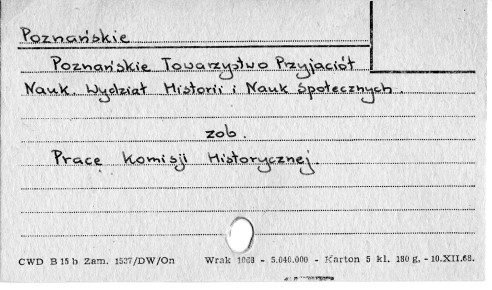 Poznańskie
Poznańskie Towarzystwo Przyjaciół
Nauk. Wydział Historii i Nauk Społecznych.
zob.
Prace Komisji Historycznej.
CWD B 15 b Zam. 1537/DW/On Wrak 1968 - 5.040.000 - Karton 5 kl. 180 g. - 10.XII.68.